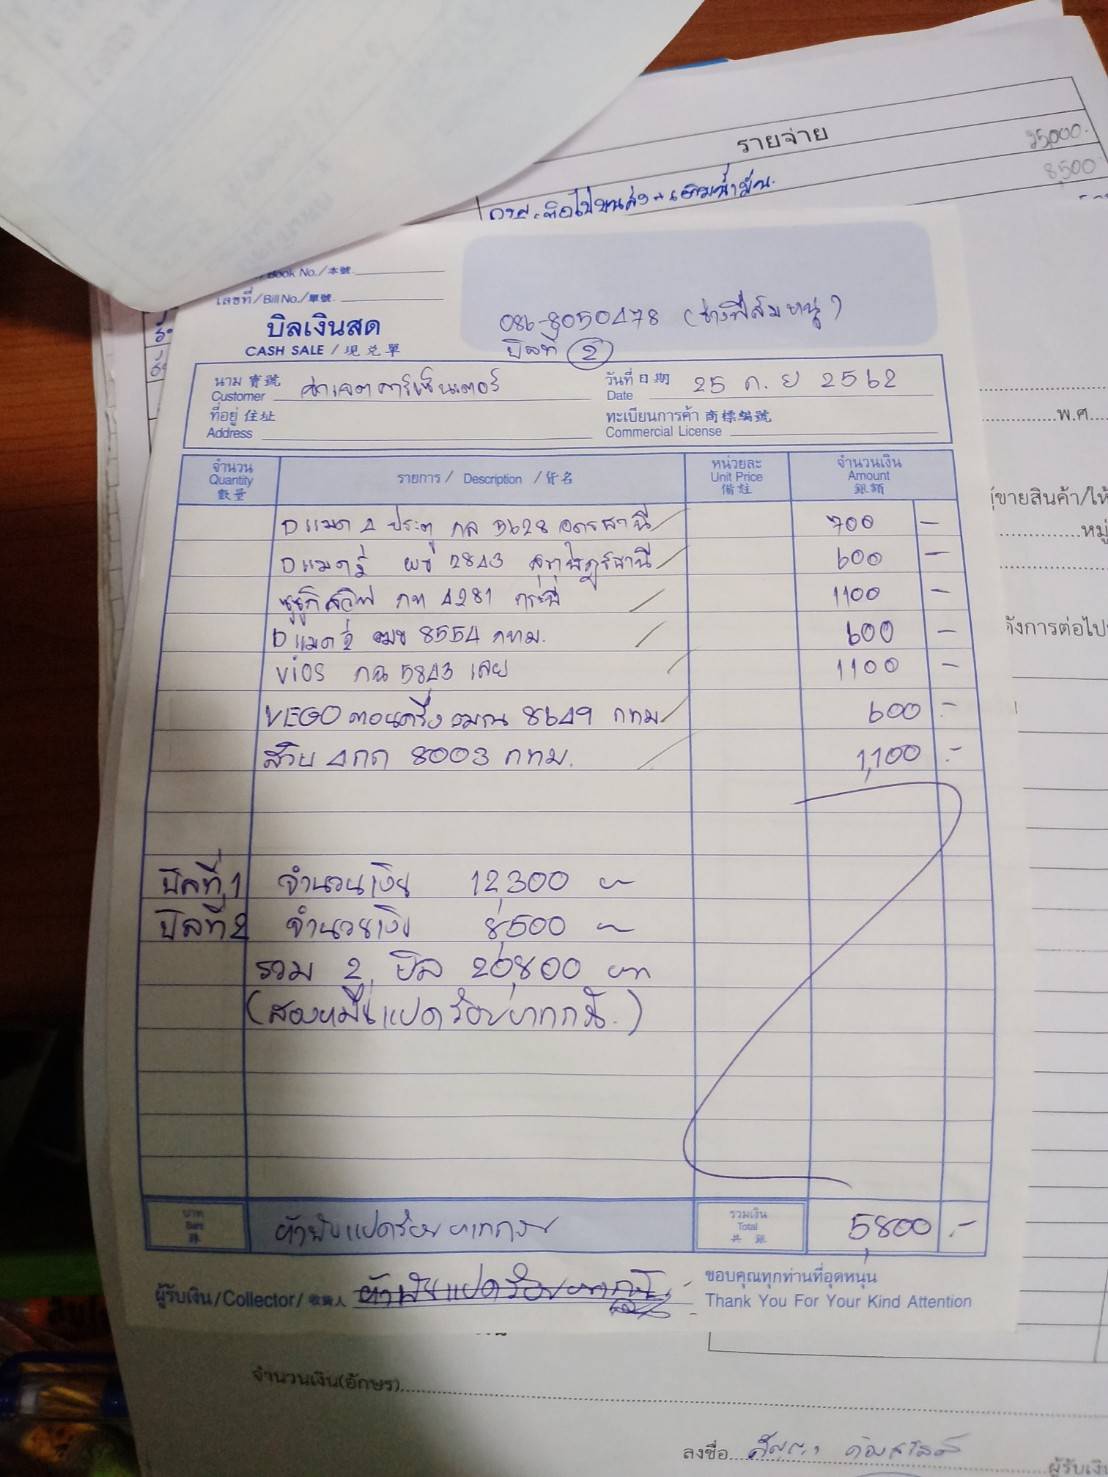 รายจ่าย
25,000.
8,500
Book No./本號
เลขที่/Bill No./單號
บิลเงินสด
CASH SALE / 現兑單
086-8050478 (ช่างพี่สมหนู)
บิลที่ 2
นาม 寶號
Customer
วันที่ 日期 25 ก.ย 2562
Date
ที่อยู่ 住址
Address
ทะเบียนการค้า 商標編號
Commercial License
จำนวน
Quantity
數量
รายการ / Description / 貨名
หน่วยละ
Unit Price
備註
จำนวนเงิน
Amount
銀額
Dแมค 4 ประตู กล 5628 อุดรธานี 700 –
Dแมค ผข 2843 สุราษฎร์ธานี 600 –
ซูซูกิ สวิฟ กท 4281 กระบี่ 1100 –
Dแมค 8554 กทม. 600 –
Vios กฉ 5843 เลย 1100 –
VEGO ตอนครึ่ง ฒณ 8649 กทม 600 –
สวิฟ 4กก 8003 กทม. 1,100 .-
บิลที่ 1 จำนวนเงิน 12,300
บิลที่ 2 จำนวนเงิน 8,500
รวม 2 บิล 20,800 บาท
(สองหมื่นแปดร้อยบาทถ้วน.)
บาท
Baht
ห้าพันแปดร้อยบาทถ้วน
รวมเงิน
Total
共銀
5,800 .-
ผู้รับเงิน/Collector/收銀人
ขอบคุณทุกท่านที่อุดหนุน
Thank You For Your Kind Attention
พ.ศ.
ผู้ขายสินค้า/ให้
หมู่
ดังการต่อไป
จำนวนเงิน(อักษร)
ลงชื่อ
ผู้รับเงิน